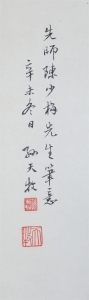 先師陳少梅先生筆意
辛未冬日 孫天牧